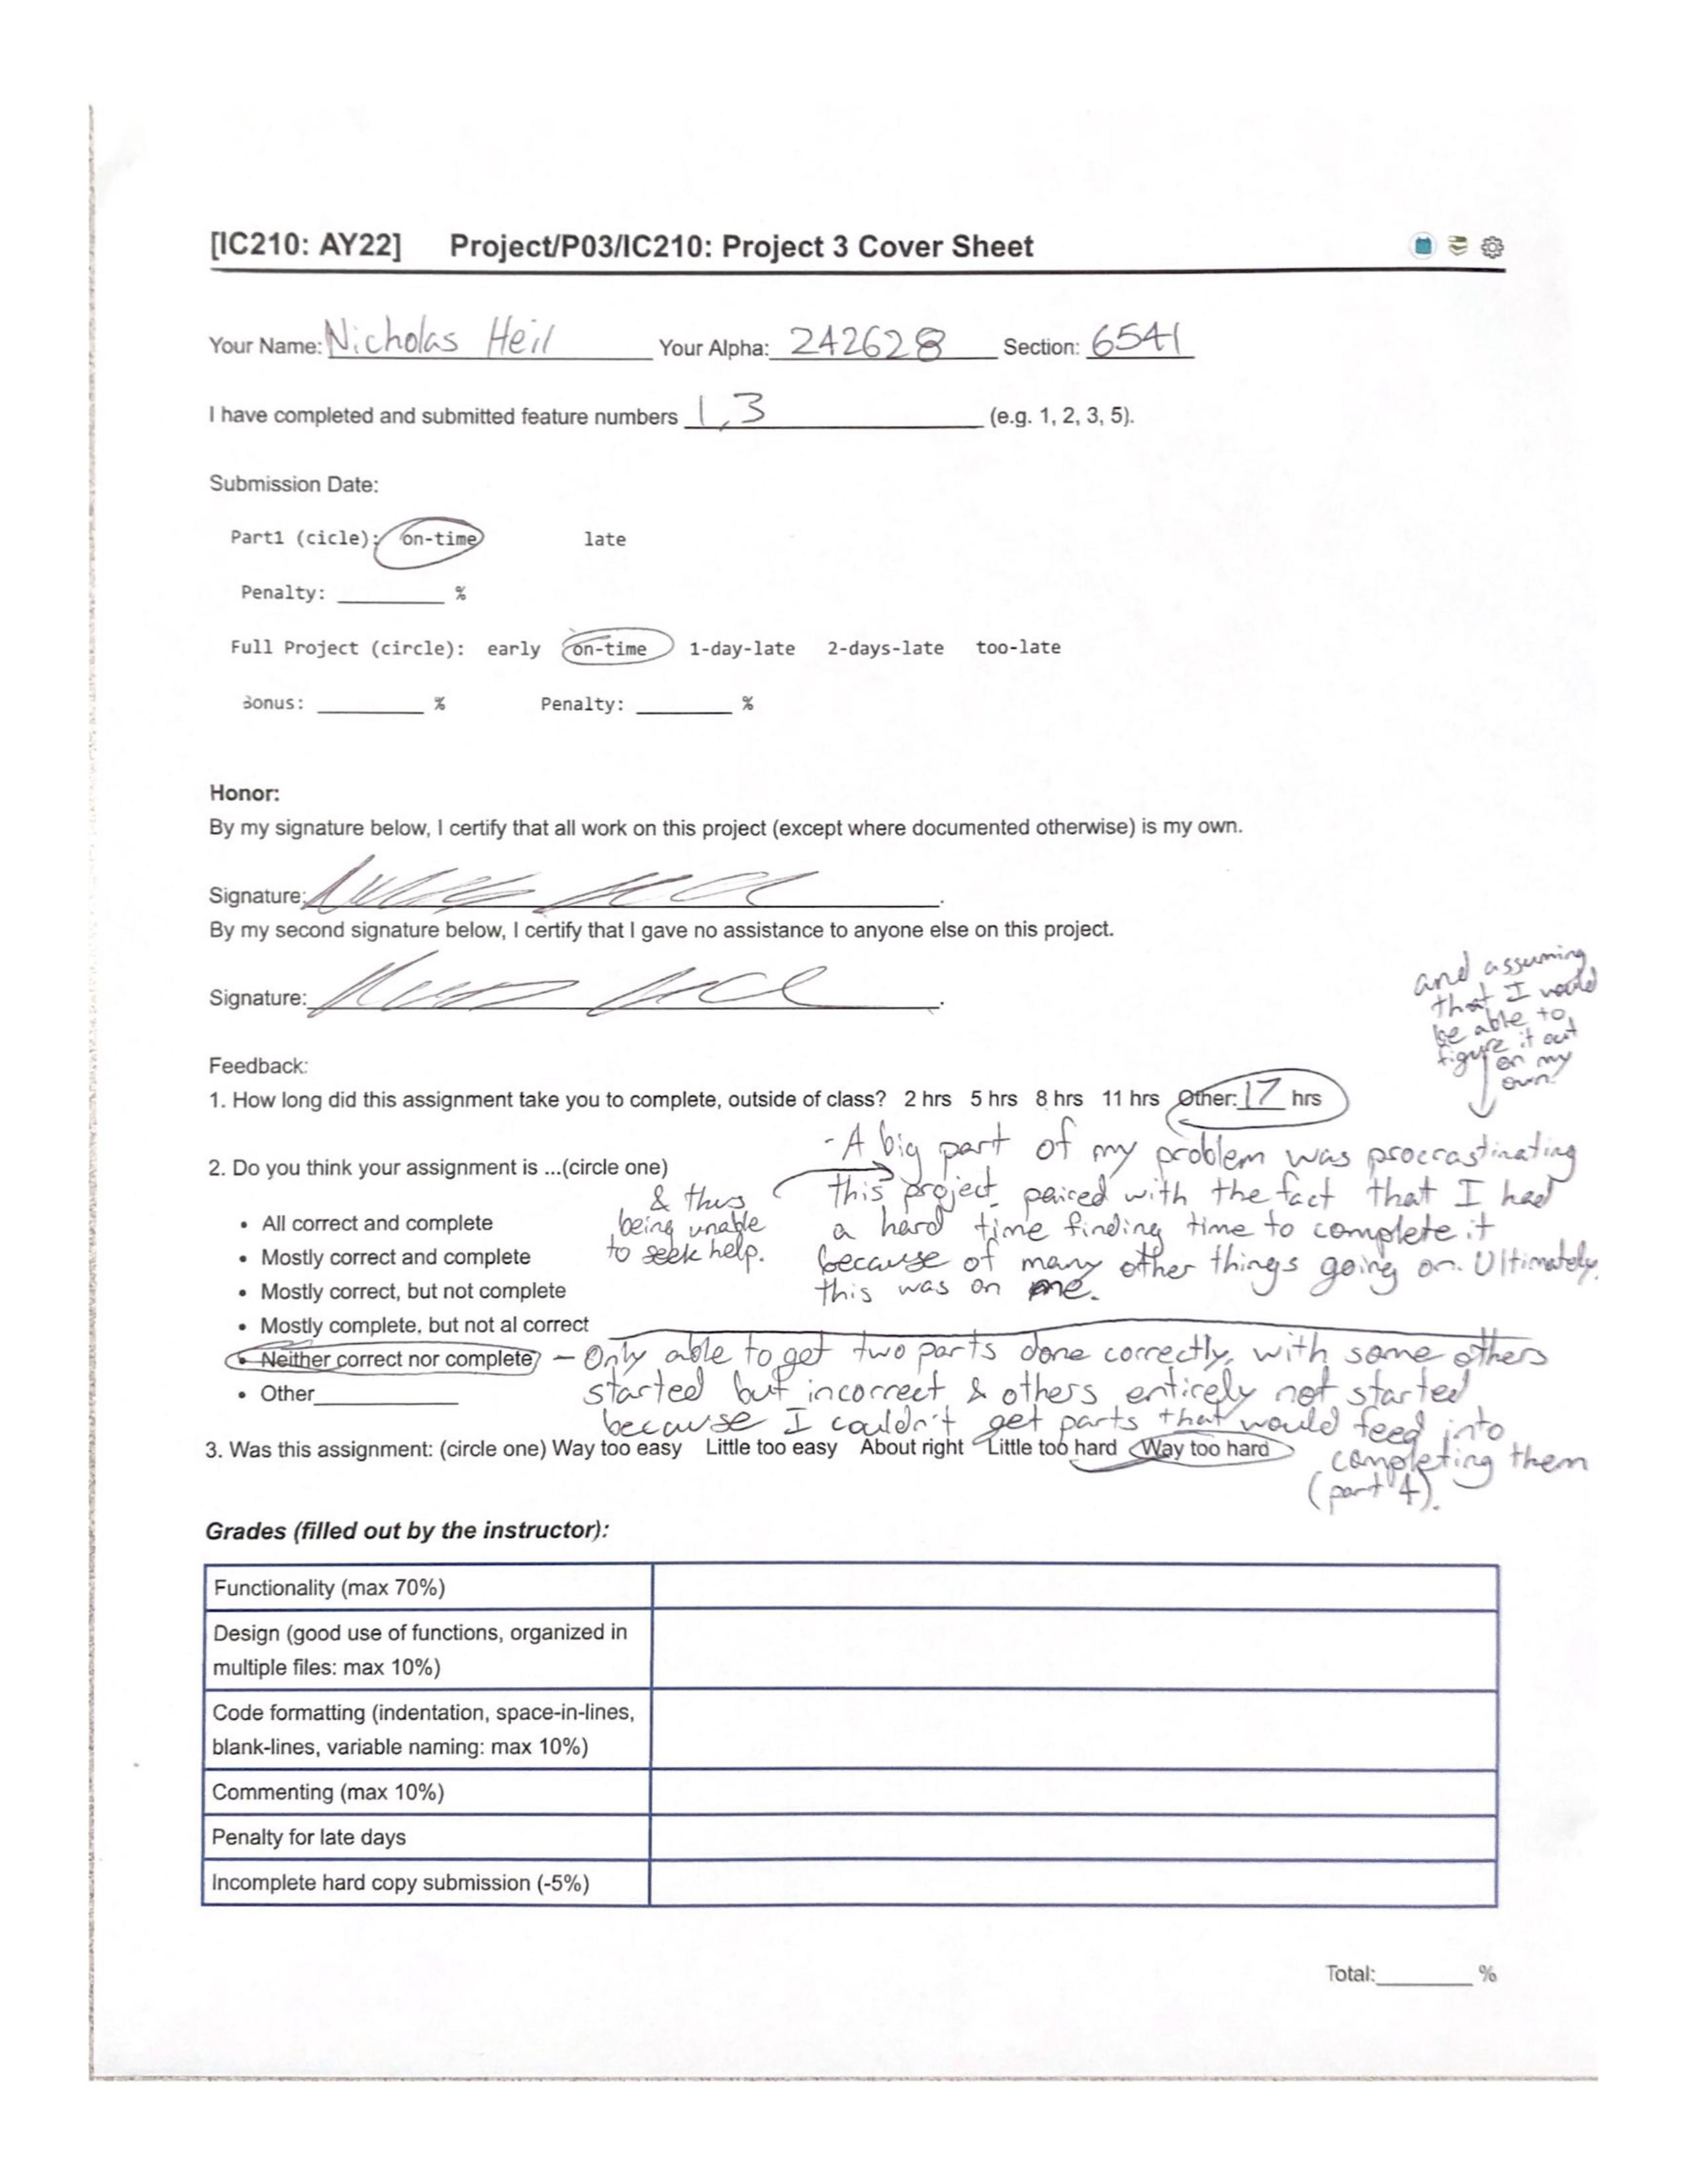 [IC210: AY22] Project/P03/IC210: Project 3 Cover Sheet
Your Name: Nicholas Heil Your Alpha: 242628 Section: 6541
I have completed and submitted feature numbers 1,3 (e.g. 1, 2, 3, 5).
Submission Date:
Part1 (cicle): on-time late
Penalty: ________ %
Full Project (circle): early on-time 1-day-late 2-days-late too-late
Bonus: ________ % Penalty: ________ %
Honor:
By my signature below, I certify that all work on this project (except where documented otherwise) is my own.
Signature:
By my second signature below, I certify that I gave no assistance to anyone else on this project.
Signature:
and assuming
that I would
be able to
figure it out
on my
own.
Feedback:
1. How long did this assignment take you to complete, outside of class? 2 hrs 5 hrs 8 hrs 11 hrs Other: 17 hrs
- A big part of my problem was procrastinating
this project paired with the fact that I had
a hard time finding time to complete it
because of many other things going on. Ultimately,
this was on me.
& thus
being unable
to seek help.
2. Do you think your assignment is ...(circle one)
• All correct and complete
• Mostly correct and complete
• Mostly correct, but not complete
• Mostly complete, but not al correct
• Neither correct nor complete - Only able to get two parts done correctly, with some others
started but incorrect & others entirely not started
because I couldn't get parts that would feed into
completing them
(part 4).
• Other
3. Was this assignment: (circle one) Way too easy Little too easy About right Little too hard Way too hard
Grades (filled out by the instructor):
Functionality (max 70%)
Design (good use of functions, organized in
multiple files: max 10%)
Code formatting (indentation, space-in-lines,
blank-lines, variable naming: max 10%)
Commenting (max 10%)
Penalty for late days
Incomplete hard copy submission (-5%)
Total: ________ %